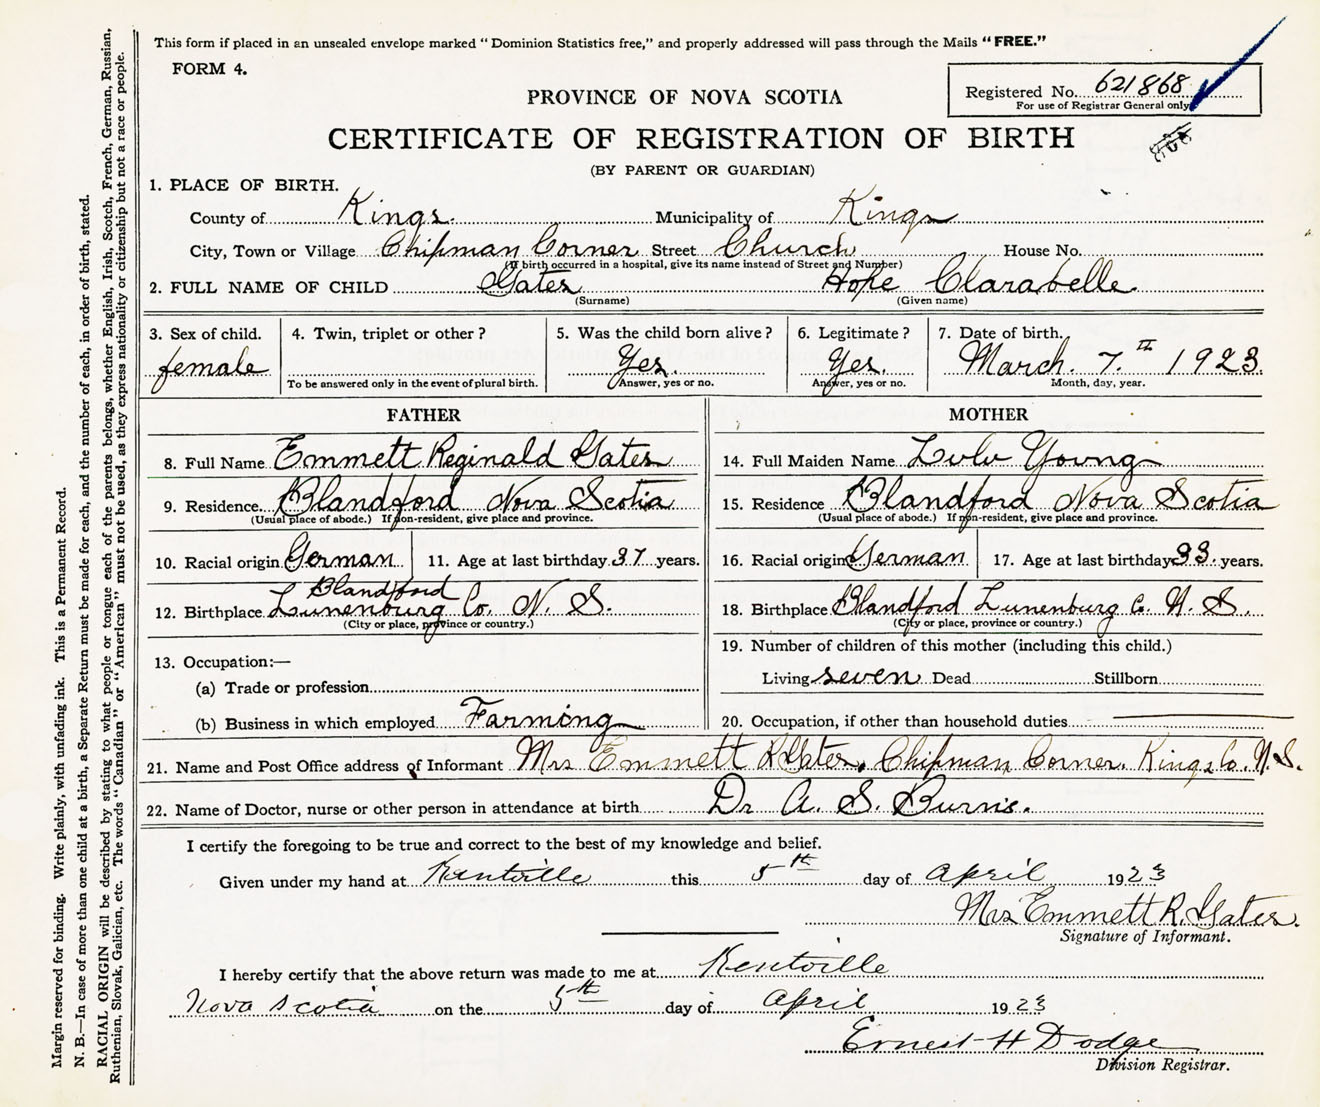 This form if placed in an unsealed envelope marked "Dominion Statistics free," and properly addressed will pass through the Mails "FREE."
FORM 4.
Registered No. 621868
For use of Registrar General only
PROVINCE OF NOVA SCOTIA
CERTIFICATE OF REGISTRATION OF BIRTH
(BY PARENT OR GUARDIAN)
1. PLACE OF BIRTH.
County of Kings. Municipality of Kings
City, Town or Village Chipman Corner Street Church House No.
(If birth occurred in a hospital, give its name instead of Street and Number)
2. FULL NAME OF CHILD Gates Hope Clarabelle
(Surname) (Given name)
3. Sex of child. 4. Twin, triplet or other? 5. Was the child born alive? 6. Legitimate? 7. Date of birth.
female Yes. Yes. March. 7.th 1923.
To be answered only in the event of plural birth. Answer, yes or no. Answer, yes or no. Month, day, year.
FATHER MOTHER
8. Full Name Emmett Reginald Gates 14. Full Maiden Name Lulu Young
9. Residence. Blandford Nova Scotia 15. Residence Blandford Nova Scotia
(Usual place of abode.) If non-resident, give place and province. (Usual place of abode.) If non-resident, give place and province.
10. Racial origin German 11. Age at last birthday 37 years. 16. Racial origin German 17. Age at last birthday 33 years.
Blandford
12. Birthplace Lunenburg Co. N. S. 18. Birthplace Blandford Lunenburg Co. N. S.
(City or place, province or country.) (City or place, province or country.)
13. Occupation:— 19. Number of children of this mother (including this child.)
(a) Trade or profession Living seven Dead Stillborn
(b) Business in which employed Farming 20. Occupation, if other than household duties
21. Name and Post Office address of Informant Mrs Emmett R. Gates, Chipman Corner, Kings Co. N. S.
22. Name of Doctor, nurse or other person in attendance at birth Dr A. S. Burns.
I certify the foregoing to be true and correct to the best of my knowledge and belief.
Given under my hand at Kentville this 5th day of April 1923
Mrs Emmett R. Gates.
Signature of Informant.
I hereby certify that the above return was made to me at Kentville
Nova Scotia on the 5th day of April 1923
Ernest H Dodge
Division Registrar.
Margin reserved for binding. Write plainly, with unfading ink. This is a Permanent Record.
N. B.—In case of more than one child at a birth, a Separate Return must be made for each, and the number of each, in order of birth, stated.
RACIAL ORIGIN will be described by stating to what people or tongue each of the parents belongs, whether English, Irish, Scotch, French, German, Russian,
Ruthenian, Slovak, Galician, etc. The words "Canadian" or "American" must not be used, as they express nationality or citizenship but not a race or people.